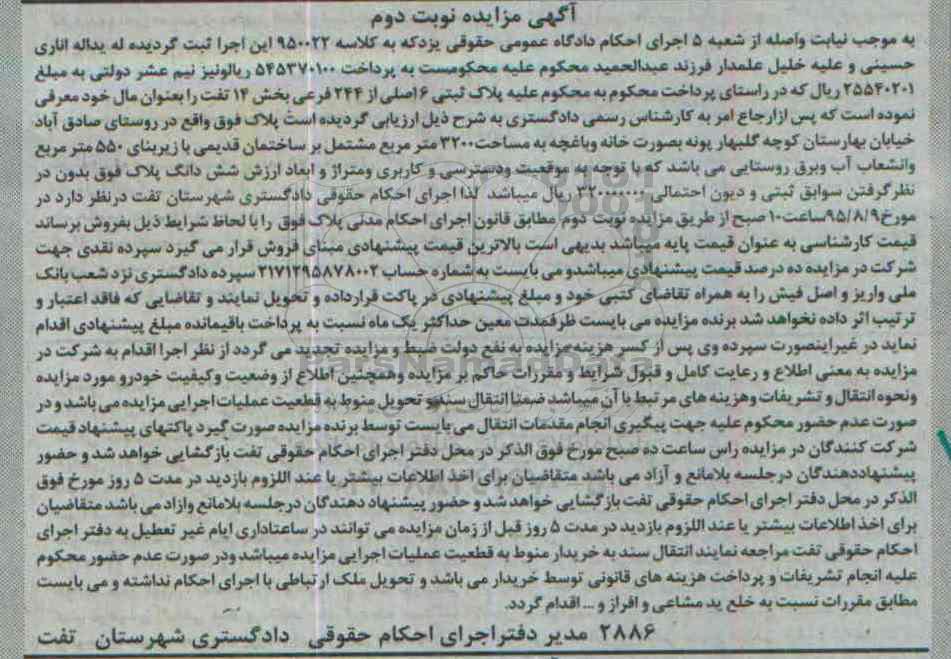 آگهی مزایده نوبت دوم
به موجب نیابت واصله از شعبه ۵ اجرای احکام دادگاه عمومی حقوقی یزدکه به کلاسه ۹۵۰۰۲۲ این اجرا ثبت گردیده له یداله اناری
حسینی و علیه خلیل علمدار فرزند عبدالحمید محکوم علیه محکومست به پرداخت ۵۴۵۳۷۰۱۰۰ ریالونیز نیم عشر دولتی به مبلغ
۲۵۵۴۰۲۰۱ ریال که در راستای پرداخت محکوم به محکوم علیه پلاک ثبتی ۶اصلی از ۲۴۴ فرعی بخش ۱۴ تفت را بعنوان مال خود معرفی
نموده است که پس ازارجاع امر به کارشناس رسمی دادگستری به شرح ذیل ارزیابی گردیده است پلاک فوق واقع در روستای صادق آباد
خیابان بهارستان کوچه گلبهار پونه بصورت خانه وباغچه به مساحت۳۲۰۰ متر مربع مشتمل بر ساختمان قدیمی با زیربنای ۵۵۰ متر مربع
وانشعاب آب وبرق روستایی می باشد که با توجه به موقعیت ودسترسی و کاربری ومتراژ و ابعاد ارزش شش دانگ پلاک فوق بدون در
نظرگرفتن سوابق ثبتی و دیون احتمالی ریال میباشد لذا اجرای احکام حقوقی دادگستری شهرستان تفت درنظر دارد در
مورخ۹۵/۸/۹ساعت۱۰ صبح از طریق مزایده نوبت دوم مطابق قانون اجرای احکام مدنی پلاک فوق را با لحاظ شرایط ذیل بفروش برساند
قیمت کارشناسی به عنوان قیمت پایه میباشد بدیهی است بالاترین قیمت پیشنهادی مبنای فروش قرار می گیرد سپرده نقدی جهت
شرکت در مزایده ده درصد قیمت پیشنهادی میباشدو می بایست به شماره حساب ۲۱۷۱۲۹۵۸۷۸۰۰۲ سپرده دادگستری نزد شعب بانک
ملی واریز و اصل فیش را به همراه تقاضای کتبی خود و مبلغ پیشنهادی در پاکت قرارداده و تحویل نمایند و تقاضایی که فاقد اعتبار و
ترتیب اثر داده نخواهد شد برنده مزایده می بایست ظرفمدت معین حداکثر یک ماه نسبت به پرداخت باقیمانده مبلغ پیشنهادی اقدام
نماید در غیراینصورت سپرده وی پس از کسر هزینه مزایده به نفع دولت ضبط و مزایده تجدید می گردد از نظر اجرا اقدام به شرکت در
مزایده به معنی اطلاع و رعایت کامل و قبول شرایط و مقررات حاکم بر مزایده وهمچنین اطلاع از وضعیت وکیفیت خودرو مورد مزایده
ونحوه انتقال و تشریفات وهزینه های مرتبط با آن میباشد ضمنا انتقال سند و تحویل منوط به قطعیت عملیات اجرایی مزایده می باشد و در
صورت عدم حضور محکوم علیه جهت پیگیری انجام مقدمات انتقال می بایست توسط برنده مزایده صورت گیرد پاکتهای پیشنهاد قیمت
شرکت کنندگان در مزایده راس ساعت ده صبح مورخ فوق الذکر در محل دفتر اجرای احکام حقوقی تفت بازگشایی خواهد شد و حضور
پیشنهاددهندگان درجلسه بلامانع و آزاد می باشد متقاضیان برای اخذ اطلاعات بیشتر یا عند اللزوم بازدید در مدت ۵ روز مورخ فوق
الذکر در محل دفتر اجرای احکام حقوقی تفت بازگشایی خواهد شد و حضور پیشنهاد دهندگان درجلسه بلامانع وازاد می باشد متقاضیان
برای اخذ اطلاعات بیشتر یا عند اللزوم بازدید در مدت ۵ روز قبل از زمان مزایده می توانند در ساعتاداری ایام غیر تعطیل به دفتر اجرای
احکام حقوقی تفت مراجعه نمایند انتقال سند به خریدار منوط به قطعیت عملیات اجرایی مزایده میباشد ودر صورت عدم حضور محکوم
علیه انجام تشریفات و پرداخت هزینه های قانونی توسط خریدار می باشد و تحویل ملک ارتباطی با اجرای احکام نداشته و می بایست
مطابق مقررات نسبت به خلع ید مشاعی و افراز و ... اقدام گردد.
۲۸۸۶ مدیر دفتراجرای احکام حقوقی دادگستری شهرستان تفت